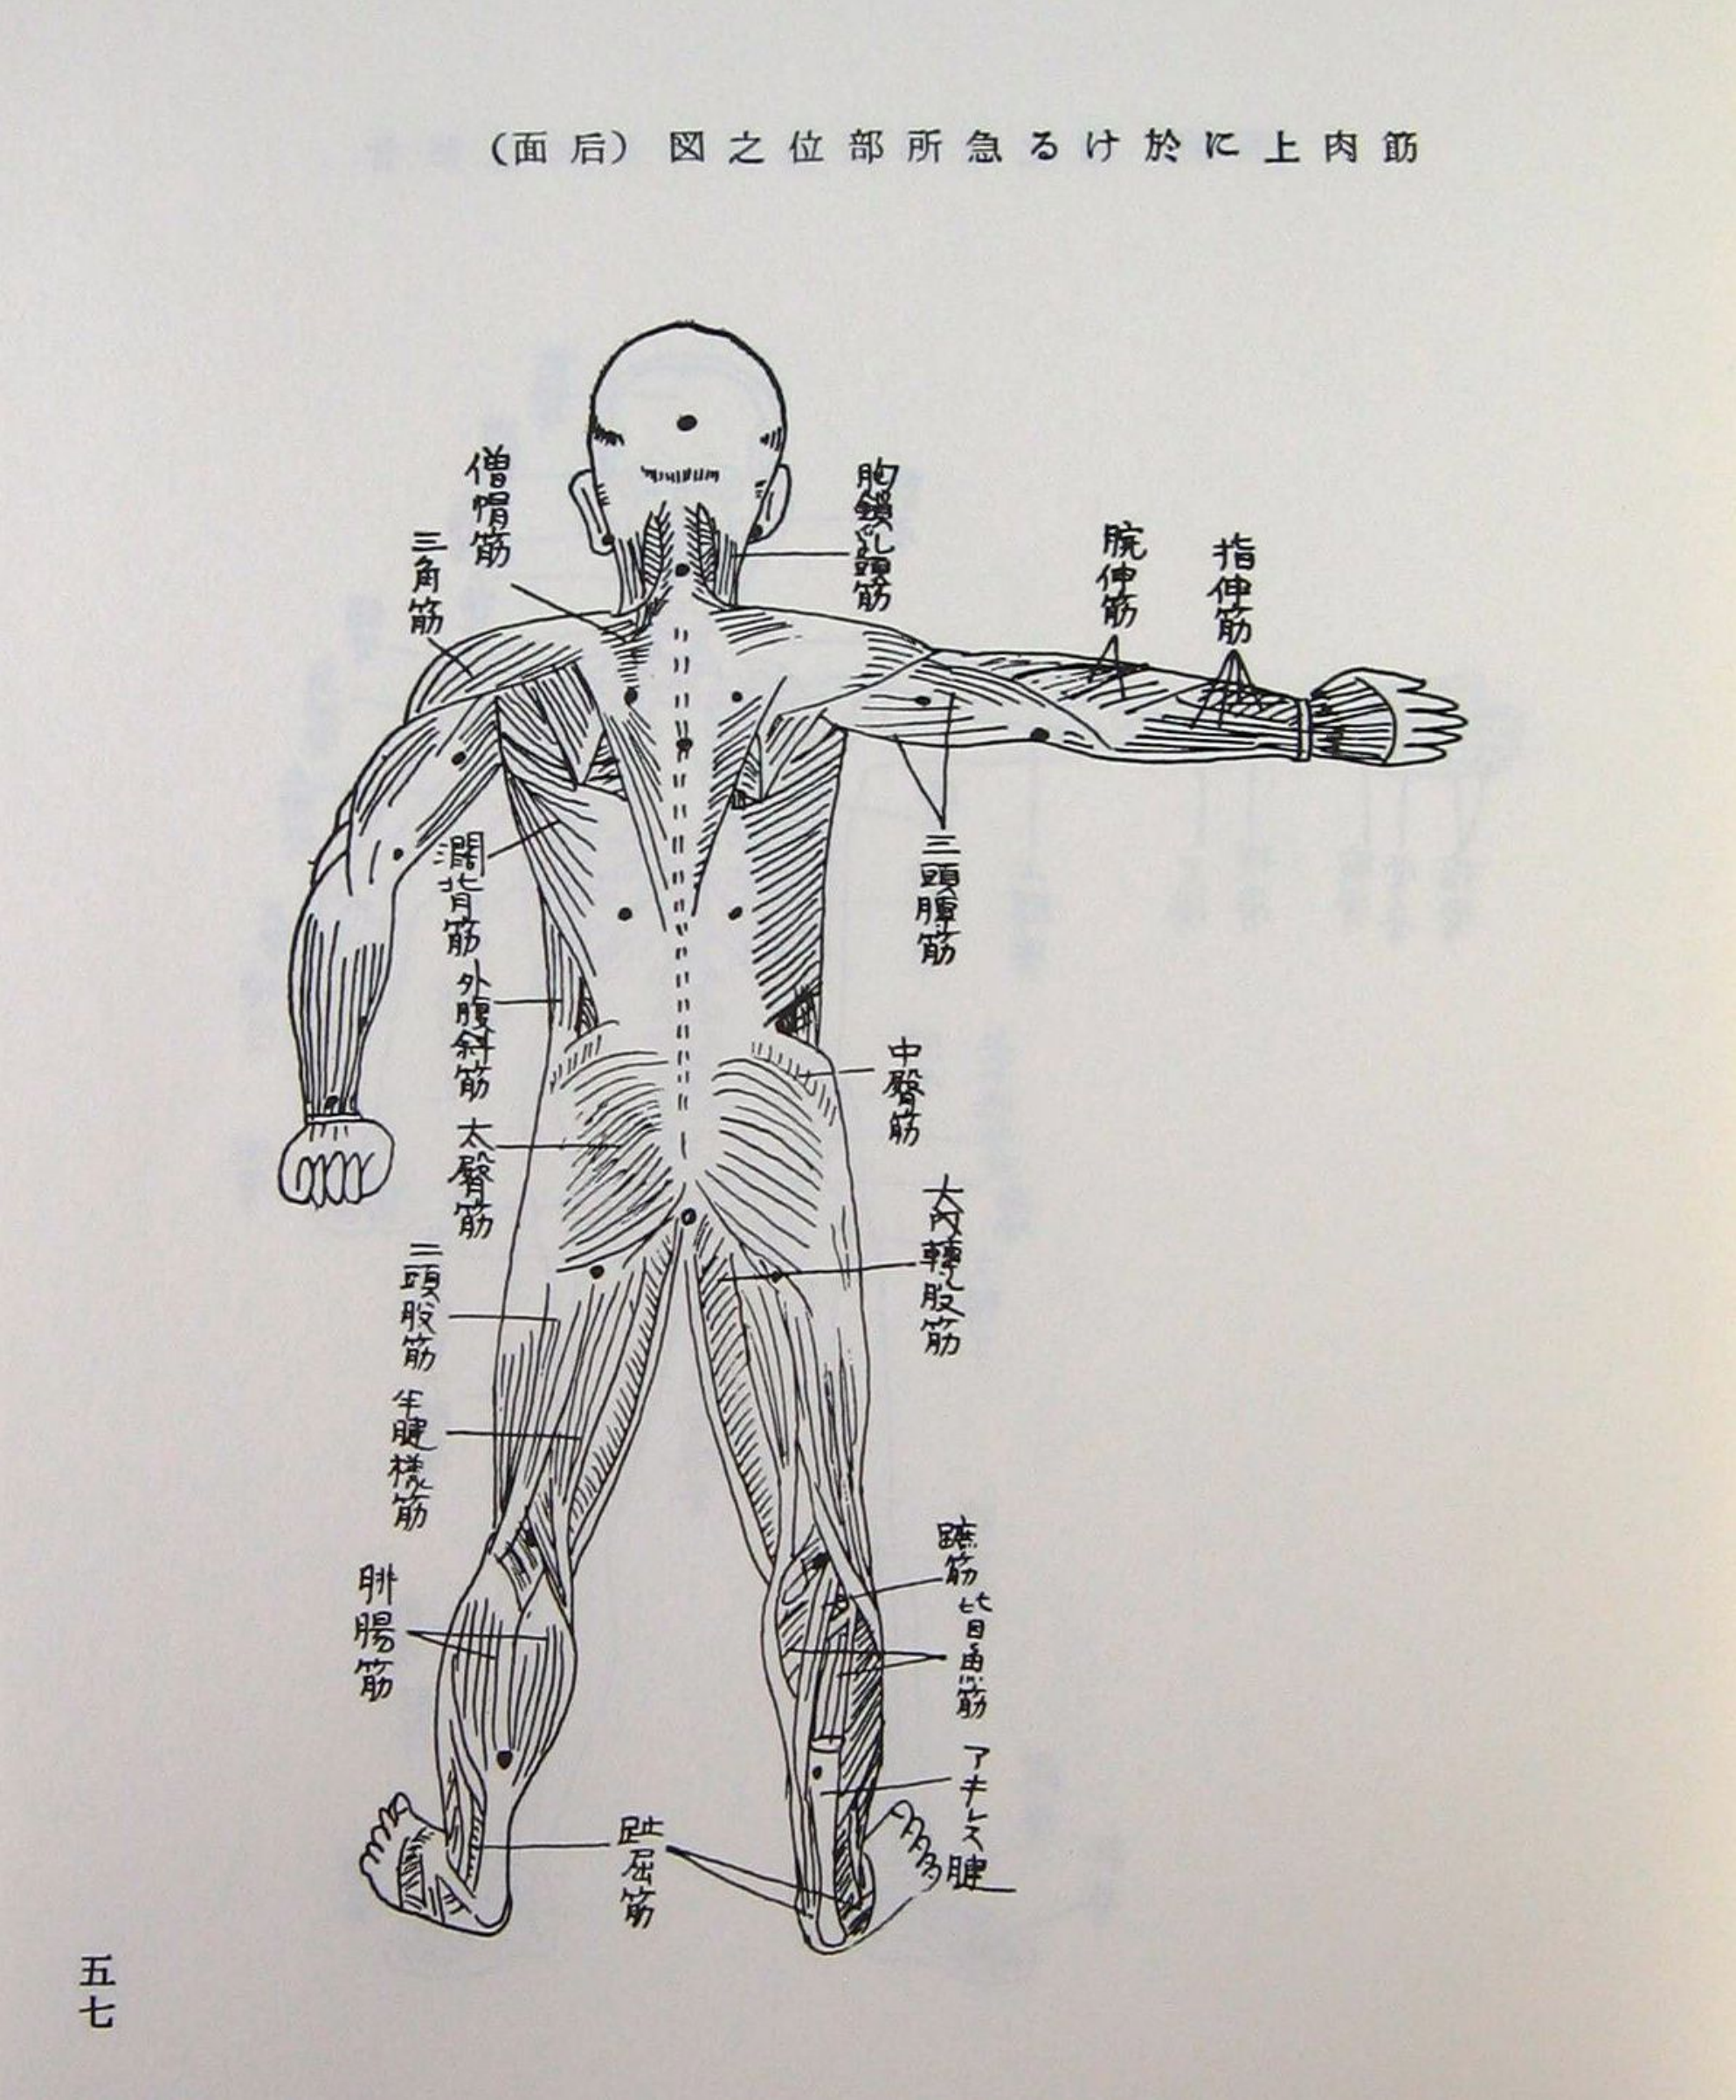 筋肉上に於ける急所部位之図（后面）
僧帽筋
三角筋
胸鎖乳頭筋
腕伸筋
指伸筋
三頭膊筋
濶背筋
外腹斜筋
中臀筋
太臀筋
大内轉股筋
二頭股筋
半腱様筋
蹠筋
比目魚筋
腓腸筋
アキレス腱
趾屈筋
五七